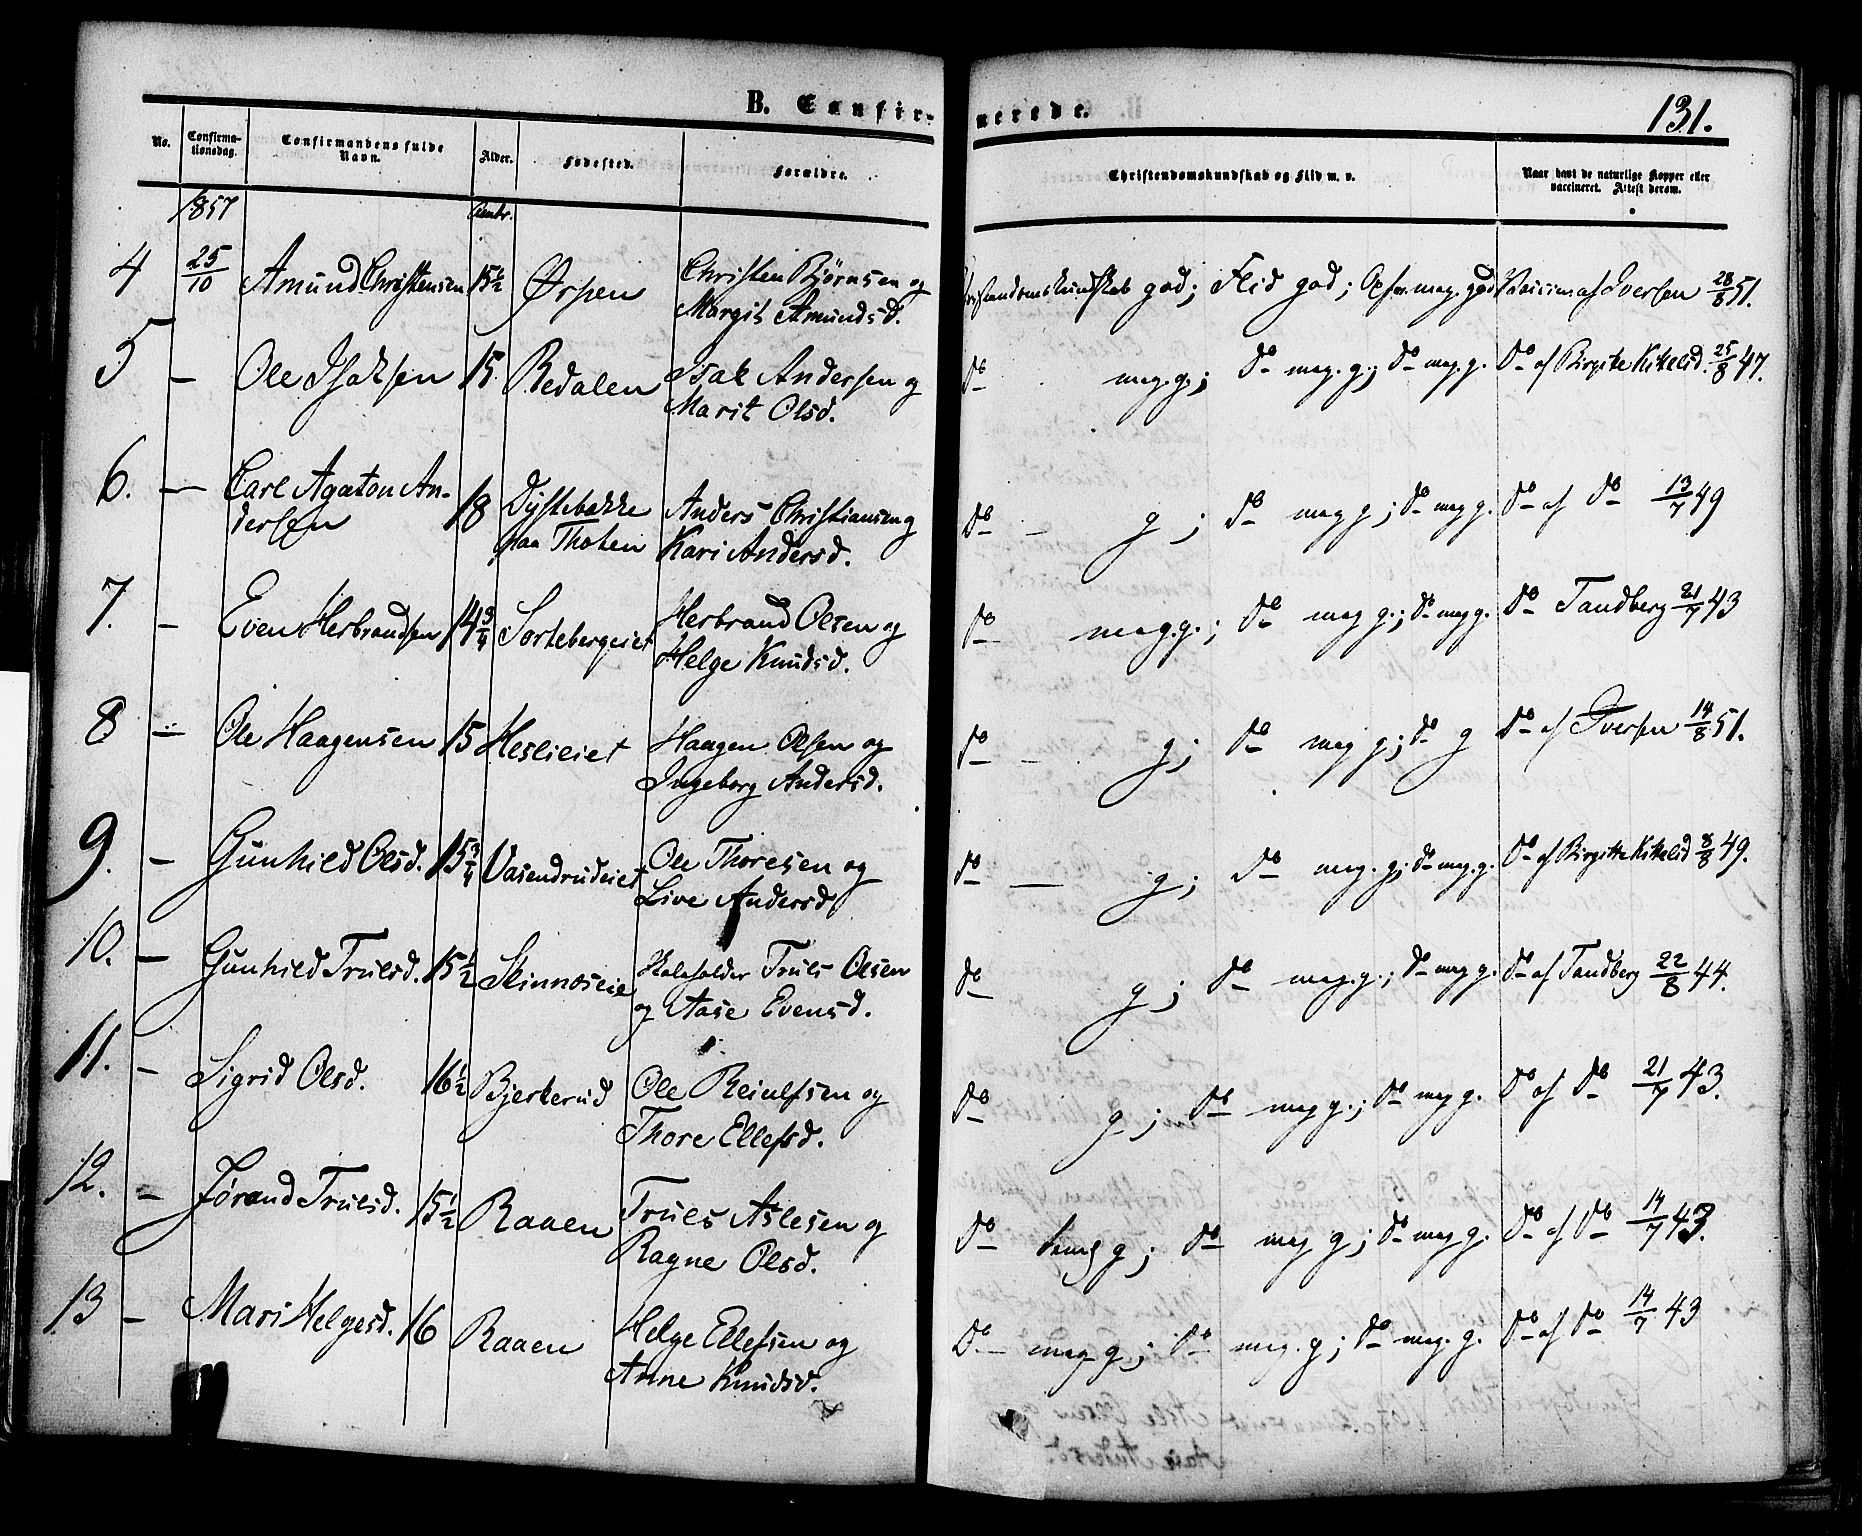 B. Confirmerede.
131.
No. Confirmationsdag. Confirmandens fulde Navn. Alder. Fødested. Forældre. Christendomskundskab og Flid m. v. Naar havt de naturlige Kopper eller vaccineret. Attest derom.
1857
4 25/10 Amund Christensen 15 1/2 Ørpen Christen Bjørnsen og Christendomskundskab god; Flid god; Opf. meg. god Vaccin. af Iversen 28/8 51.
Margit Amundsd.
5 – Ole Isaksen 15 Redalen Isak Andersen og do meg. g.; do meg. g.; do meg. g. do af Birgite Kikelid. 25/8 47.
Marit Olsd.
6. – Carl Agaton An- 18 Dystebakke Anders Christiansen og do – g; do meg g; do meg g. do af do 13/7 49
dersen paa Thoten Kari Andersd.
7. – Even Herbrandsen 14 3/4 Sortebergeiet Herbrand Olsen og do meg. g.; do meg g.; do meg g. do Tandberg 21/7 43
Helge Knudsd.
8 – Ole Haagensen 15 Heslieiet Haagen Olsen og do – g; do meg g; do g do af Iversen 14/8 51.
Ingeborg Andersd.
9. – Gunhild Olsd. 15 3/4 Vasendrudeiet Ole Thoresen og do – g; do meg. g; do meg. g. do af Birgitte Kikelid 8/8 49.
Live Andersd
10. – Gunhild Trulsd. 15 1/2 Skinnoseie Truls Olsen do g; do meg. g.; do meg g. do af Tandberg 22/8 44.
og Aase Evensd.
11. – Sigrid Olsd. 16 1/2 Bjerkerud Ole Reiulfsen og do g; do meg g.; do meg g. do af do 21/7 43.
Thore Ellefsd.
12. – Jørand Trulsd. 15 1/2 Raaen Truls Aslesen og do g; do meg g; do meg g. do af do 14/7 43.
Ragne Olsd.
13 – Mari Helgesd. 16 Raaen Helge Ellefsen og do meg g; do meg. g; do meg. g. do af do 14/7 43
Anne Knudsd.